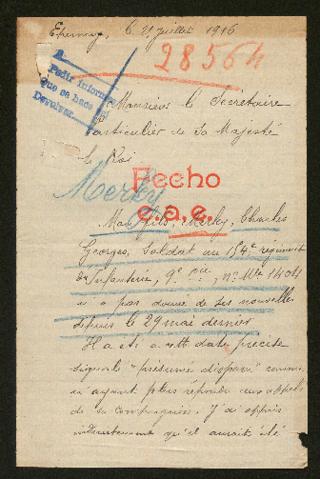 Epernay, le 21 juillet 1916
28564
A
Pedir Inform
Que se hace
Devolver
Monsieur le Secrétaire
Particulier de Sa Majesté
le Roi
Fecho
e.a.e.
Merky
Mon fils, Merky, Charles
Georges, Soldat au 154e régiment
d'Infanterie, 9e Cie, n° Mle 14011
n'a pas donné de ses nouvelles
depuis le 29 mai dernier.
Il a été à cette date précise
signalé "présumé disparu" comme
n'ayant plus répondu aux appels
de sa compagnie. J'ai appris
indirectement qu'il aurait été